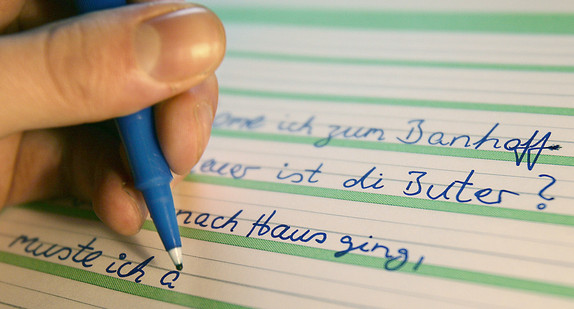 ich zum Banhoff
ist di Buter ?
nach Haus ging,
muste ich a